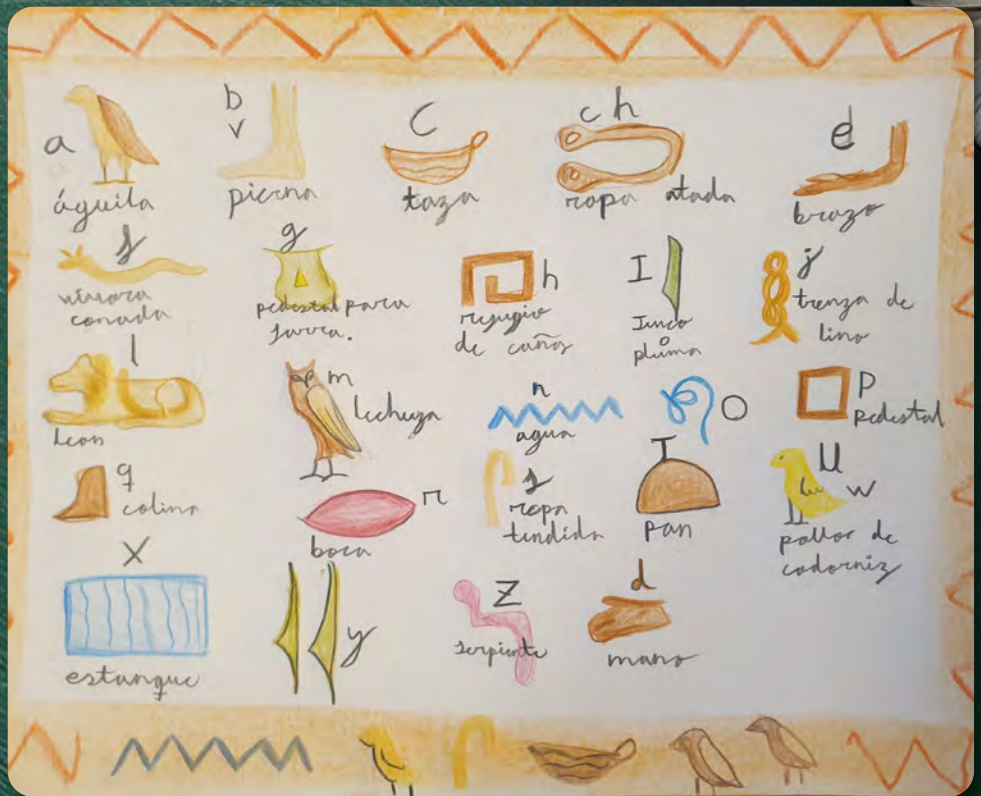 a
águila
b
v
pierna
C
taza
ch
ropa atada
e
brazo
f
conada
g
pedestal para
Jarra.
h
refugio
de caños
I
Junco
o
pluma
j
trenza de
lino
l
Leon
m
lechuza
n
agua
O
p
pedestal
q
colina
r
boca
s
ropa
tendida
T
pan
U
w
codorniz
X
estanque
y
Z
serpiente
d
mano